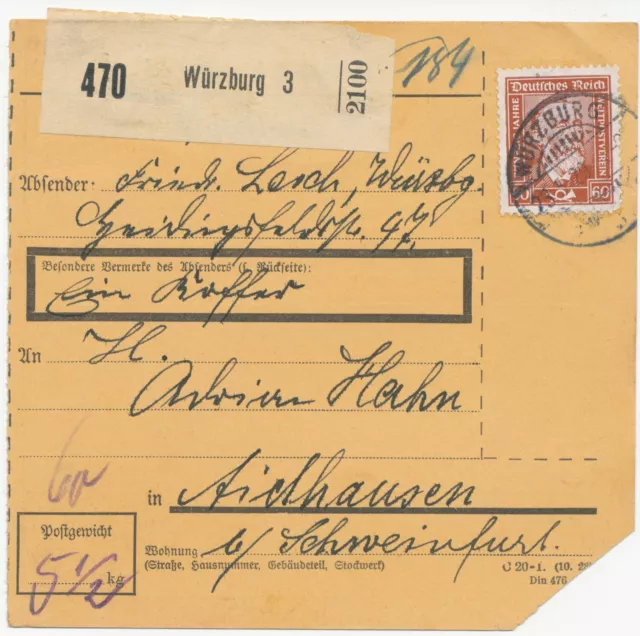 470 Würzburg 3 2100
184
Deutsches Reich
JAHRE WELTPOSTVEREIN
60
WÜRZBURG
Absender: Friedr. Lerch, Würzbg.
Heidingsfeldstr. 47.
Besondere Vermerke des Absenders (s. Rückseite):
Ein Koffer
An H.
Adrian Hahn
60
in Aidhausen
Postgewicht
5 1/2 kg
Wohnung b/ Schweinfurt.
(Straße, Hausnummer, Gebäudeteil, Stockwerk)
C 20-1. (10. 28
Din 476